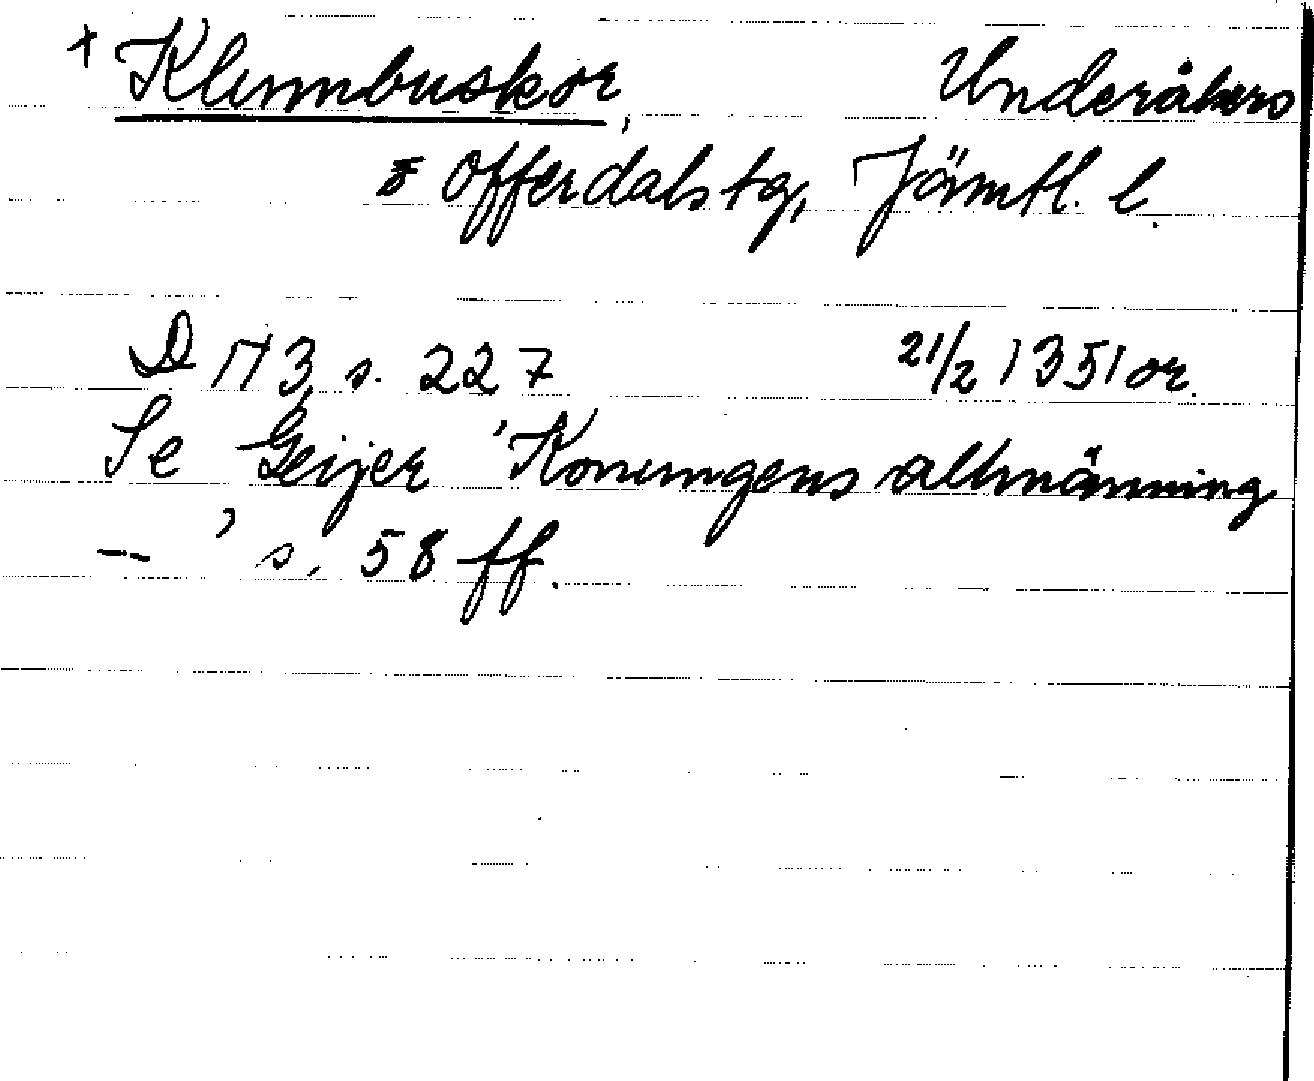 + Klumbuskor, Underåkers
o Offerdals tg, Jämtl. l.
D 173 s. 227 21/2 1351 or.
Se Geijer 'Konungens allmänning
-- ' s. 58 ff.